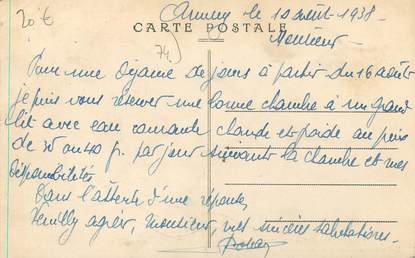 20 €
74)
Annecy le 10 août 1938 -
CARTE POSTALE
Monsieur -
Pour une dizaine de jours à partir du 16 août
je puis vous réserver une bonne chambre à un grand
lit avec eau courante chaude et froide au prix
de 35 ou 40 fr. par jour suivant la chambre et mes
disponibilités
Dans l'attente d'une réponse,
Veuillez agréer, Monsieur, mes sincères salutations.